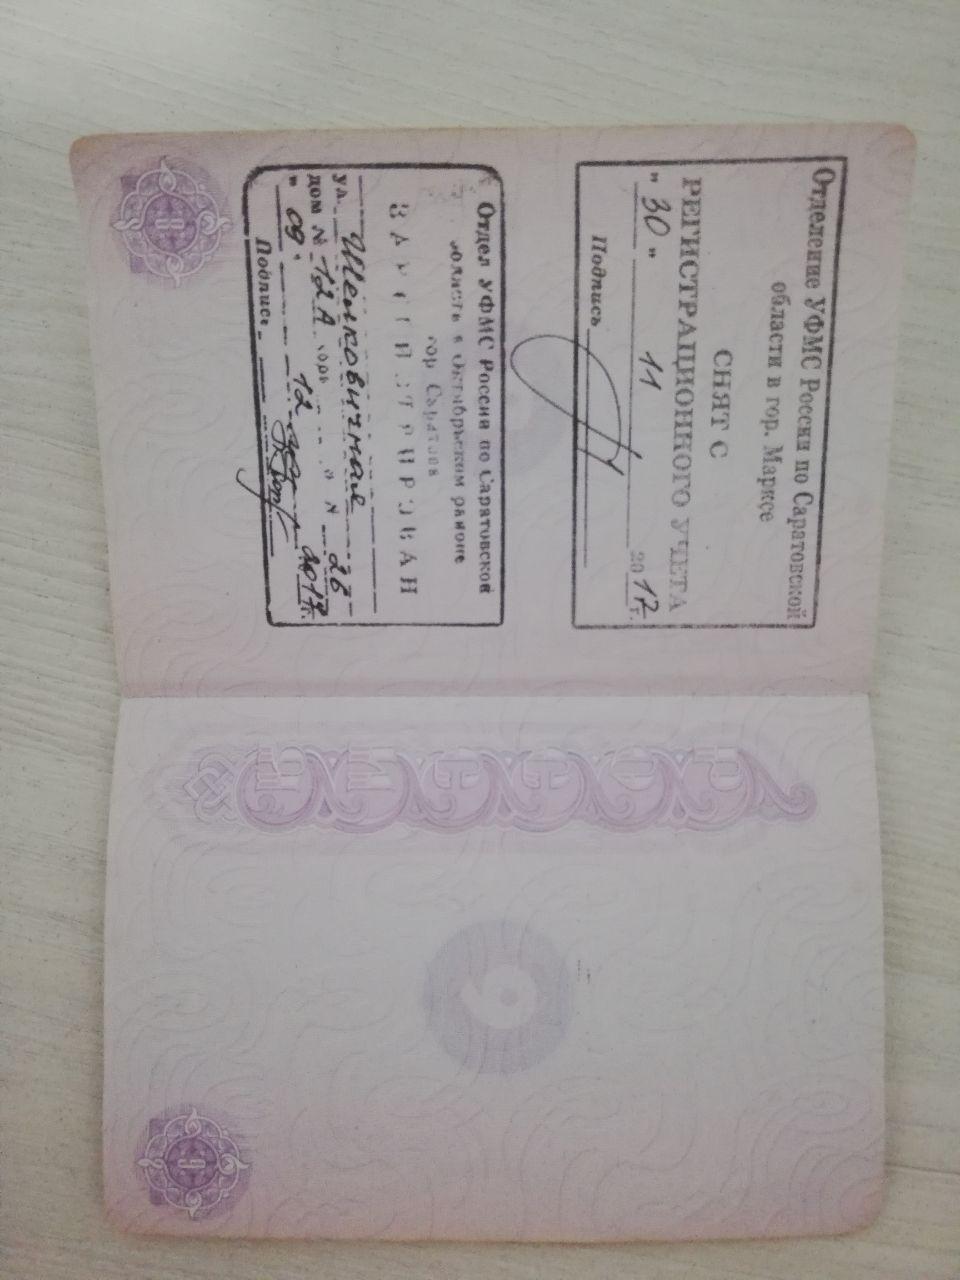 Отделение УФМС России по Саратовской
области в гор. Марксе
СНЯТ С
РЕГИСТРАЦИОННОГО УЧЕТА
" 30 " 11 2017 г.
Подпись
Отдел УФМС России по Саратовской
области в Октябрьском районе
гор. Саратова
ЗАРЕГИСТРИРОВАН
ул. Шелковичная
дом № 12А корп. 26
" 09 " 12 2017 г.
Подпись
РОССИЯ
9